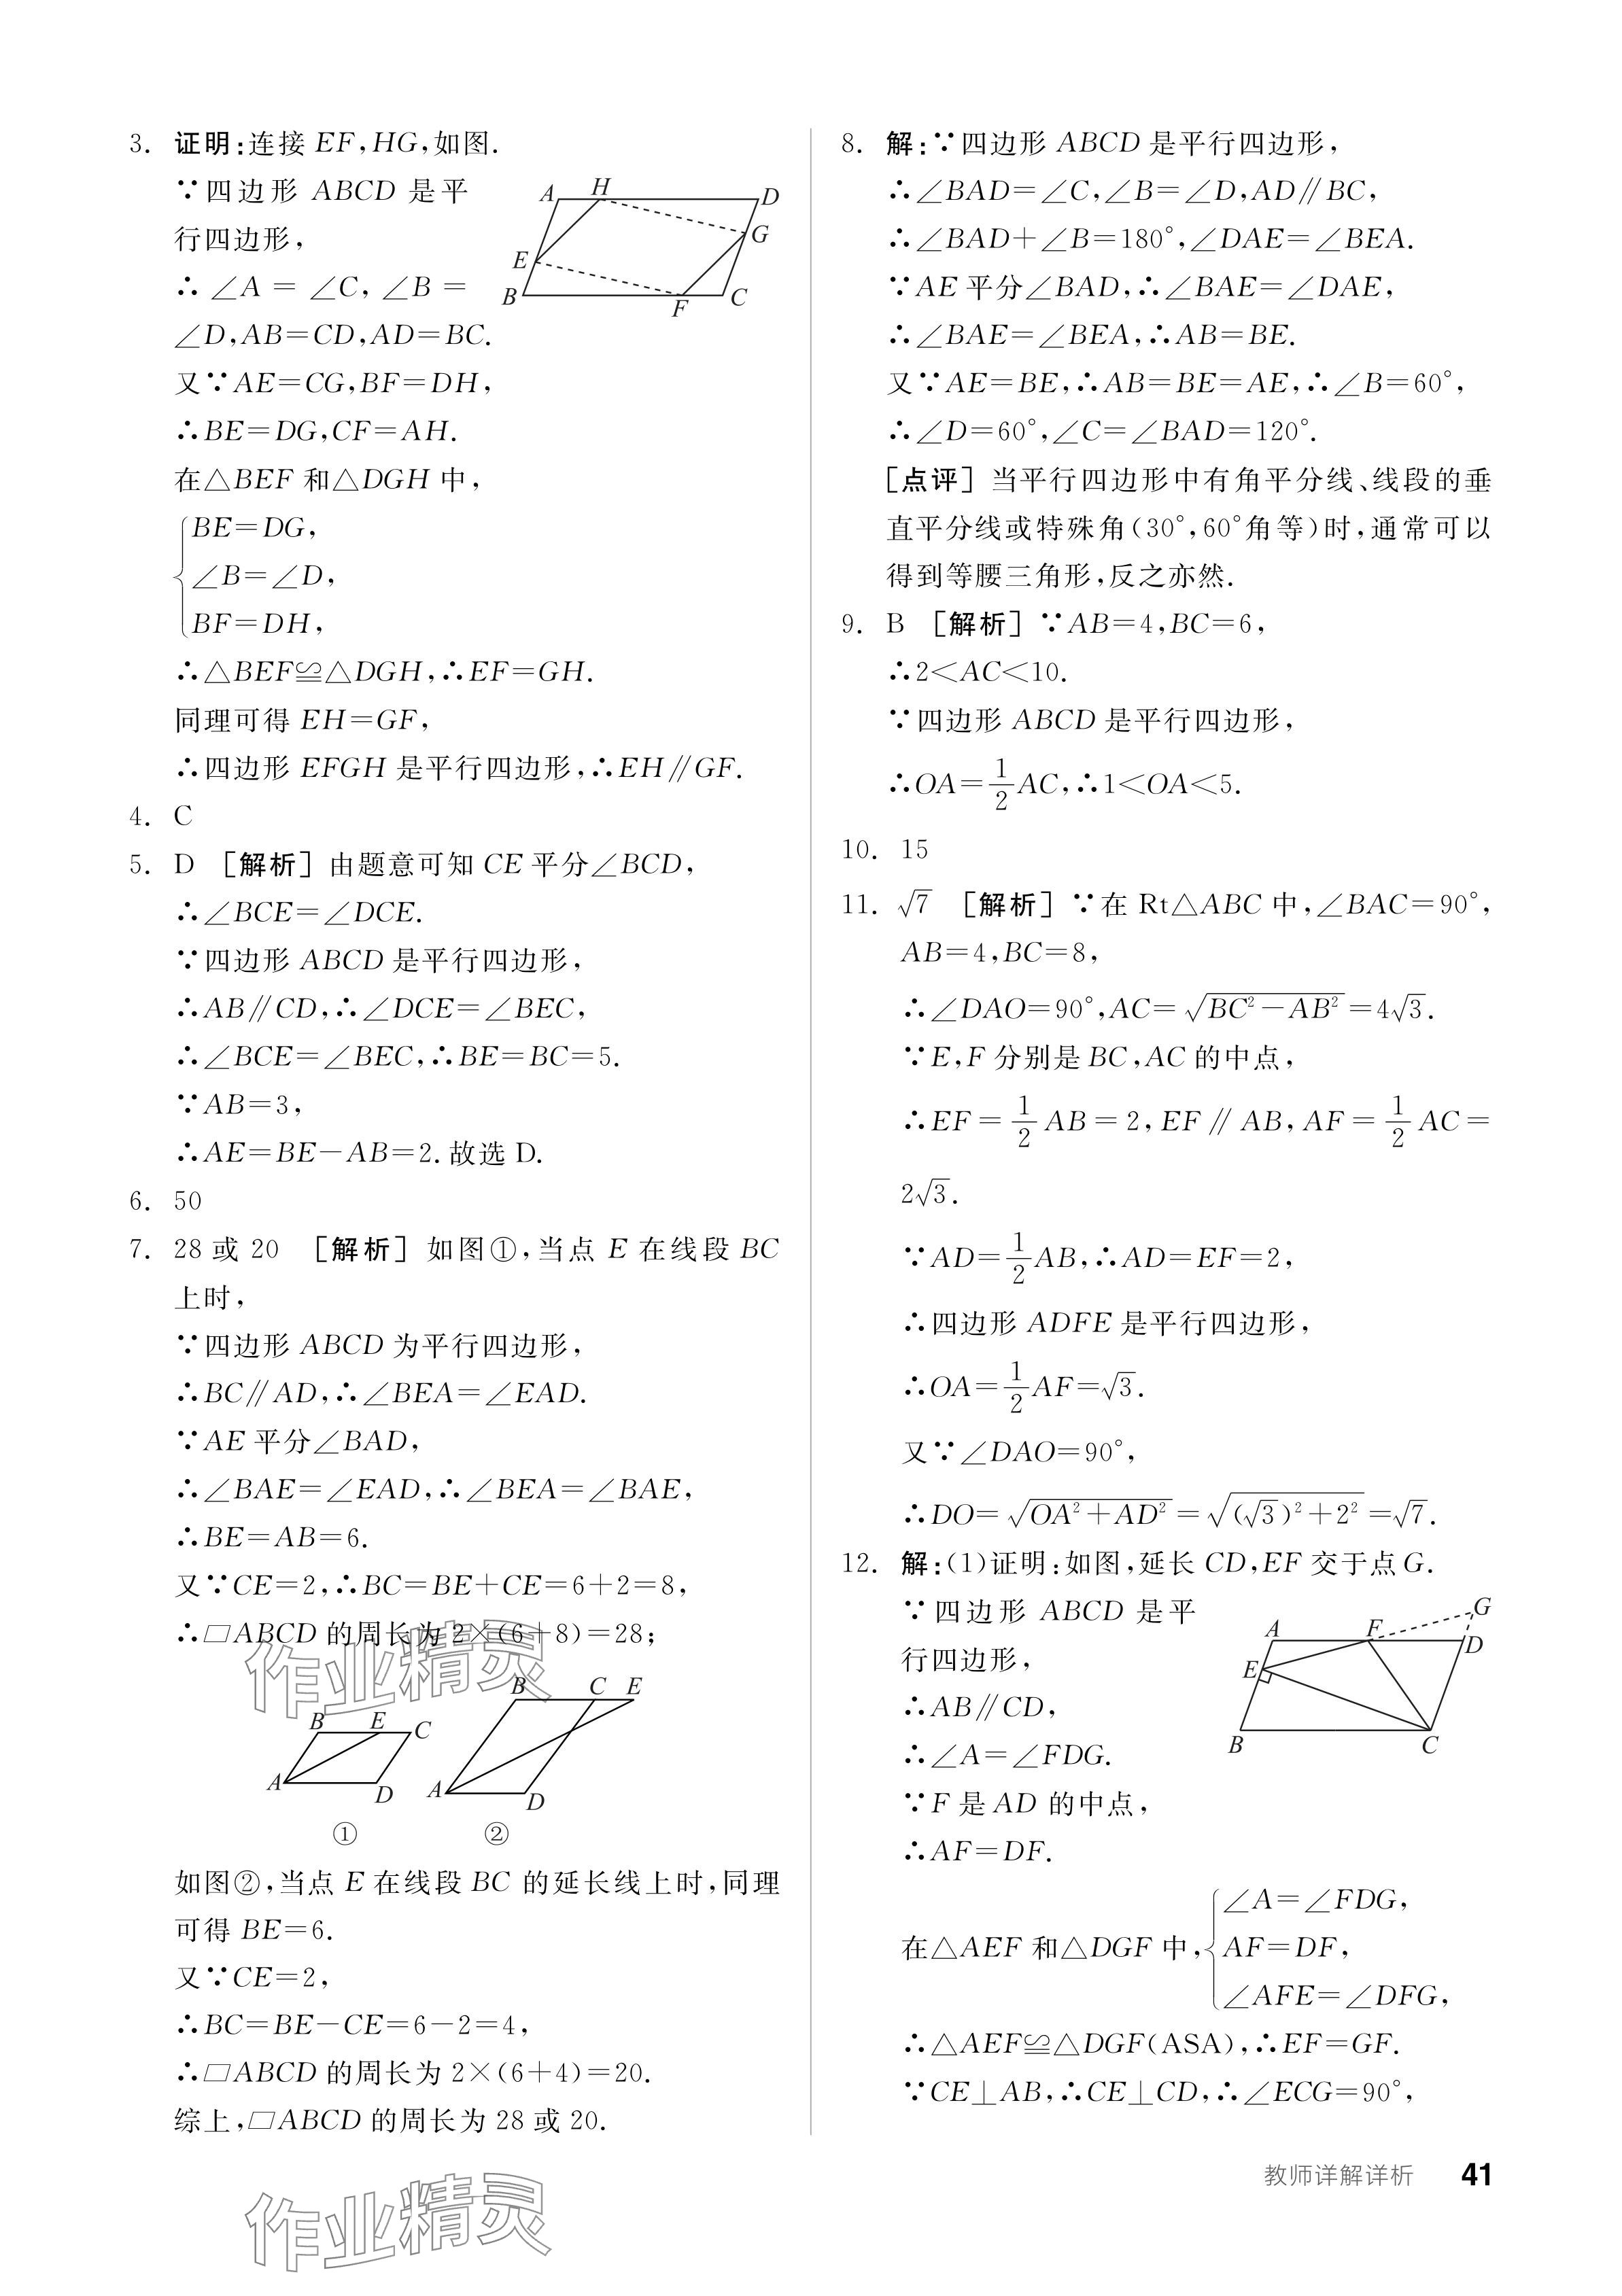 3. 证明:连接 EF,HG,如图.
∵四边形 ABCD 是平
行四边形,
∴ ∠A = ∠C, ∠B =
∠D,AB=CD,AD=BC.
A H D G E B F C
又∵AE=CG,BF=DH,
∴BE=DG,CF=AH.
在△BEF 和△DGH 中,
BE=DG,
∠B=∠D,
BF=DH,
∴△BEF≌△DGH,∴EF=GH.
同理可得 EH=GF,
∴四边形 EFGH 是平行四边形,∴EH∥GF.
4. C
5. D [解析] 由题意可知 CE 平分∠BCD,
∴∠BCE=∠DCE.
∵四边形 ABCD 是平行四边形,
∴AB∥CD,∴∠DCE=∠BEC,
∴∠BCE=∠BEC,∴BE=BC=5.
∵AB=3,
∴AE=BE-AB=2.故选 D.
6. 50
7. 28 或 20 [解析] 如图①,当点 E 在线段 BC
上时,
∵四边形 ABCD 为平行四边形,
∴BC∥AD,∴∠BEA=∠EAD.
∵AE 平分∠BAD,
∴∠BAE=∠EAD,∴∠BEA=∠BAE,
∴BE=AB=6.
又∵CE=2,∴BC=BE+CE=6+2=8,
∴▱ABCD 的周长为 2×(6+8)=28;
作业精灵
B E C A D
B C E A D
① ②
如图②,当点 E 在线段 BC 的延长线上时,同理
可得 BE=6.
又∵CE=2,
∴BC=BE-CE=6-2=4,
∴▱ABCD 的周长为 2×(6+4)=20.
综上,▱ABCD 的周长为 28 或 20.
8. 解:∵四边形 ABCD 是平行四边形,
∴∠BAD=∠C,∠B=∠D,AD∥BC,
∴∠BAD+∠B=180°,∠DAE=∠BEA.
∵AE 平分∠BAD,∴∠BAE=∠DAE,
∴∠BAE=∠BEA,∴AB=BE.
又∵AE=BE,∴AB=BE=AE,∴∠B=60°,
∴∠D=60°,∠C=∠BAD=120°.
[点评] 当平行四边形中有角平分线、线段的垂
直平分线或特殊角(30°,60°角等)时,通常可以
得到等腰三角形,反之亦然.
9. B [解析] ∵AB=4,BC=6,
∴2<AC<10.
∵四边形 ABCD 是平行四边形,
∴OA=1/2AC,∴1<OA<5.
10. 15
11. √7 [解析] ∵在 Rt△ABC 中,∠BAC=90°,
AB=4,BC=8,
∴∠DAO=90°,AC=√(BC²-AB²)=4√3.
∵E,F 分别是 BC,AC 的中点,
∴EF=1/2AB=2,EF∥AB,AF=1/2AC=
2√3.
∵AD=1/2AB,∴AD=EF=2,
∴四边形 ADFE 是平行四边形,
∴OA=1/2AF=√3.
又∵∠DAO=90°,
∴DO=√(OA²+AD²)=√((√3)²+2²)=√7.
12. 解:(1)证明:如图,延长 CD,EF 交于点 G.
∵四边形 ABCD 是平
行四边形,
∴AB∥CD,
∴∠A=∠FDG.
A F G D E B C
∵F 是 AD 的中点,
∴AF=DF.
∠A=∠FDG,
在△AEF 和△DGF 中, AF=DF,
∠AFE=∠DFG,
∴△AEF≌△DGF(ASA),∴EF=GF.
∵CE⊥AB,∴CE⊥CD,∴∠ECG=90°,
教师详解详析 41
作业精灵